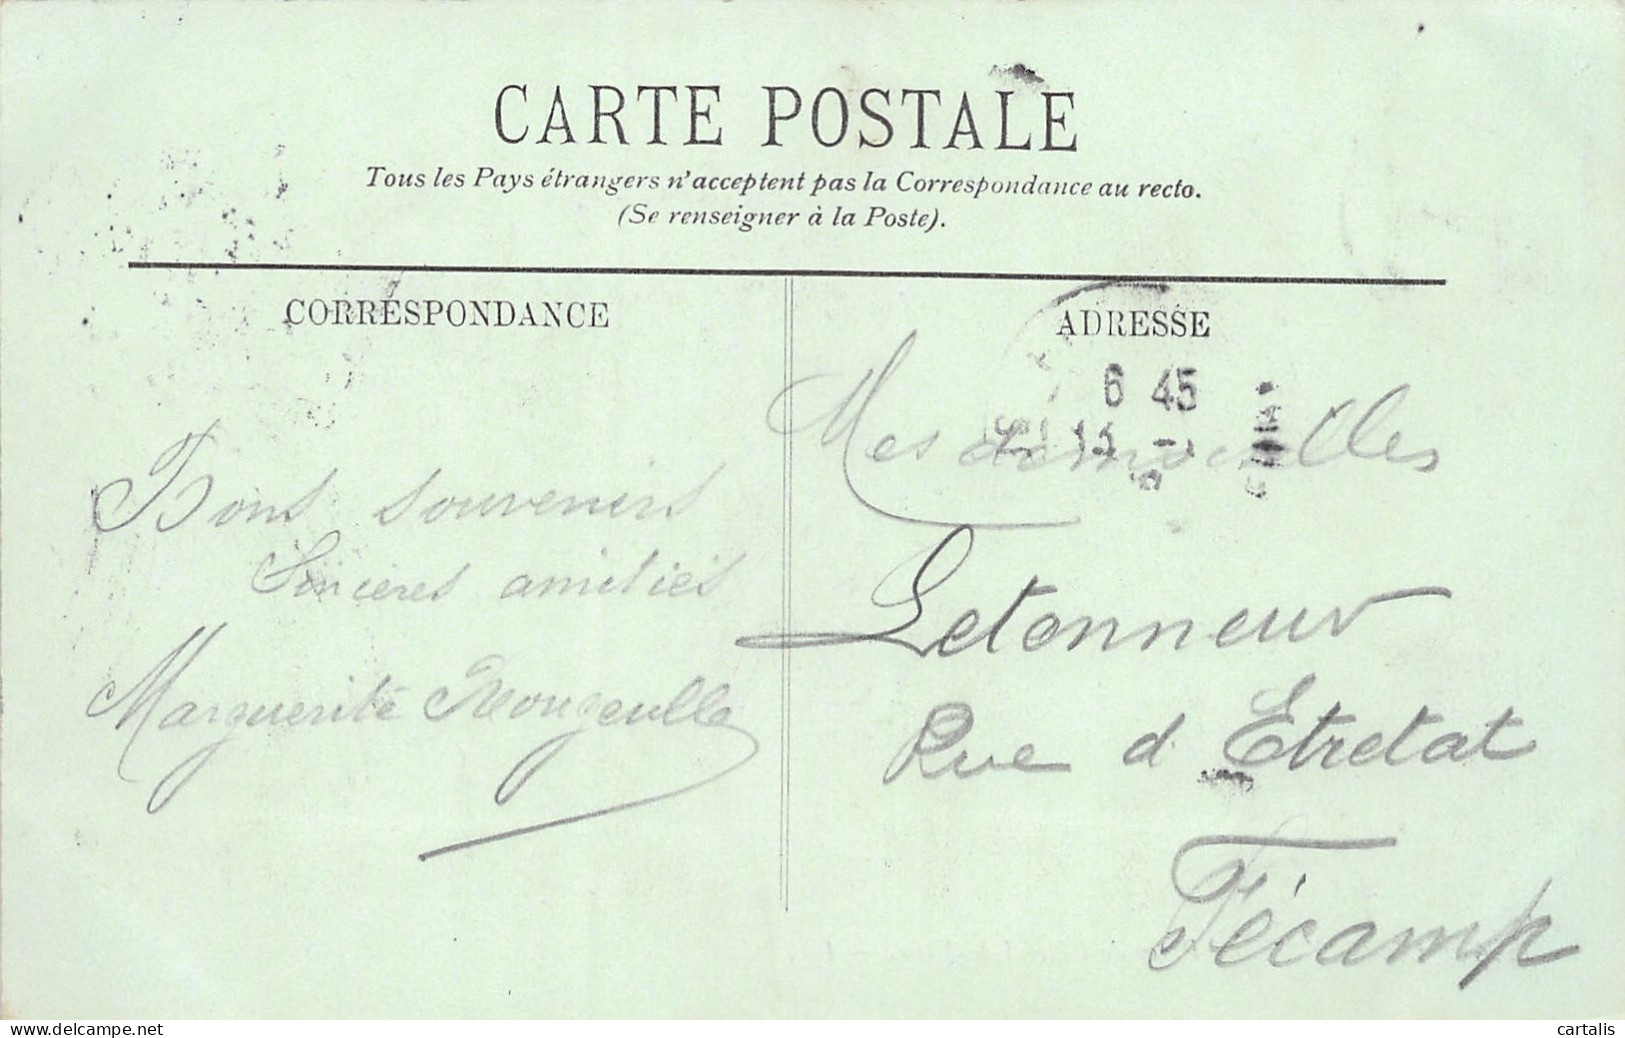 CARTE POSTALE
Tous les Pays étrangers n'acceptent pas la Correspondance au recto.
(Se renseigner à la Poste).
CORRESPONDANCE
Bons souvenirs
Sincères amitiés
Marguerite
ADRESSE
6 45
Mesdemoiselles
Letonneur
Rue d Etretat
Fécamp
www.delcampe.net
cartalis